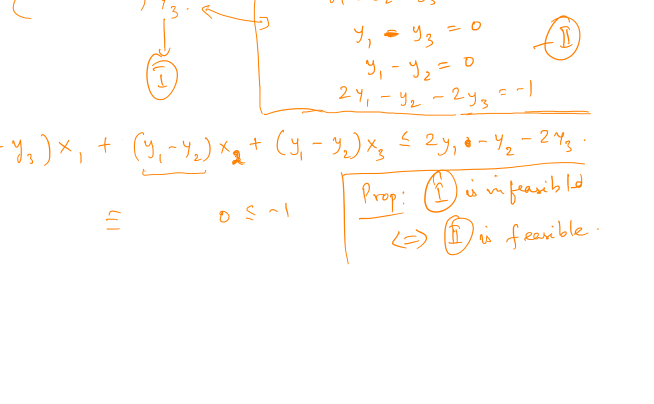 y₃.
y₁ - y₃ = 0
Ⅱ
y₁ - y₂ = 0
2y₁ - y₂ - 2y₃ = -1
I
- y₃) x₁ + (y₁ - y₂) x₂ + (y₁ - y₂) x₃ ≤ 2y₁ - y₂ - 2y₃.
≡ 0 ≤ -1
Prop: I is infeasible
<=> II is feasible.